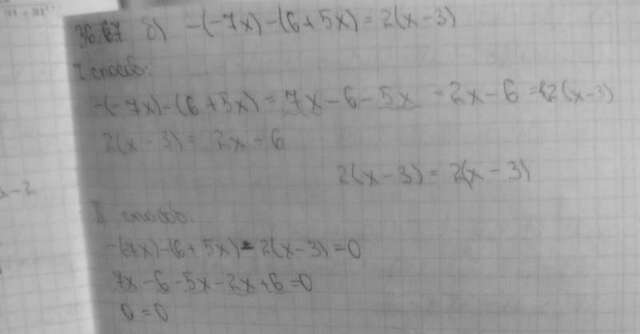 36.67 б) -(-7x)-(6+5x)=2(x-3)
I способ:
-(-7x)-(6+5x)=7x-6-5x=2x-6=2(x-3)
2(x-3)=2x-6
2(x-3)=2(x-3)
x-2
II способ.
-(-7x)-(6+5x)-2(x-3)=0
7x-6-5x-2x+6=0
0=0